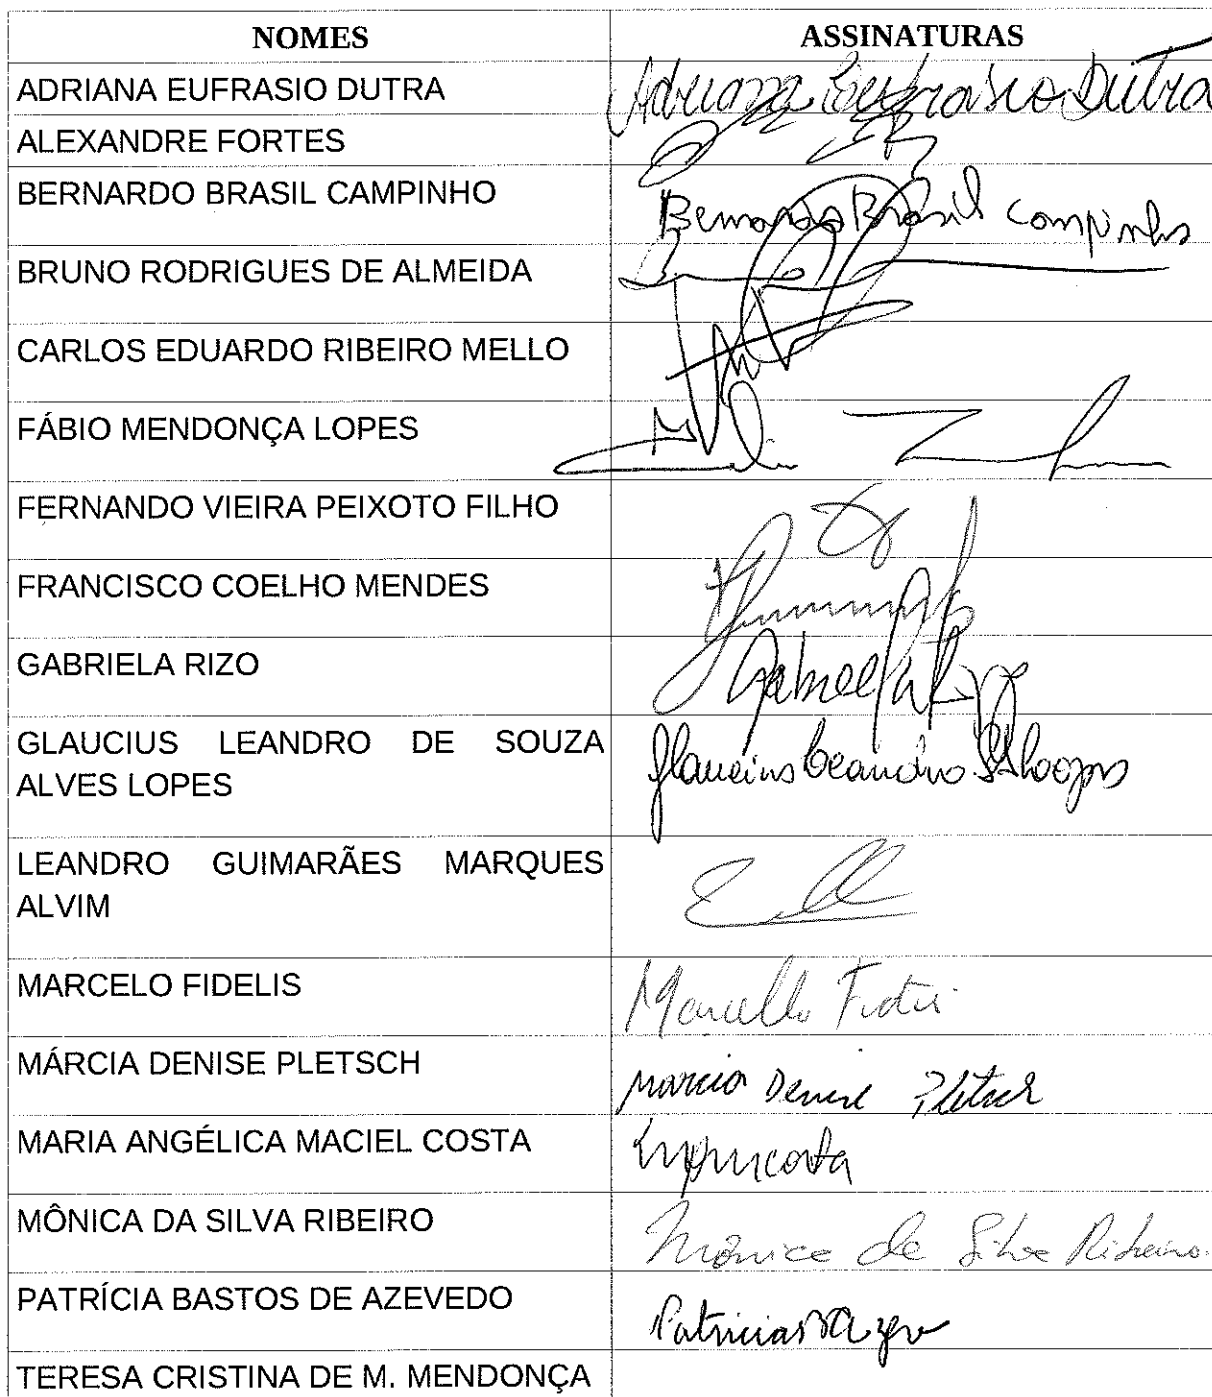 NOMES ASSINATURAS
ADRIANA EUFRASIO DUTRA Adriana Eufrasio Dutra
ALEXANDRE FORTES
BERNARDO BRASIL CAMPINHO Bernardo Brasil Campinho
BRUNO RODRIGUES DE ALMEIDA
CARLOS EDUARDO RIBEIRO MELLO
FÁBIO MENDONÇA LOPES
FERNANDO VIEIRA PEIXOTO FILHO
FRANCISCO COELHO MENDES
GABRIELA RIZO Gabriela Rizo
GLAUCIUS LEANDRO DE SOUZA Glaucius Leandro
ALVES LOPES
LEANDRO GUIMARÃES MARQUES
ALVIM
MARCELO FIDELIS Marcello
MÁRCIA DENISE PLETSCH Marcia Denise Pletsch
MARIA ANGÉLICA MACIEL COSTA
MÔNICA DA SILVA RIBEIRO Mônica da Silva Ribeiro.
PATRÍCIA BASTOS DE AZEVEDO
TERESA CRISTINA DE M. MENDONÇA